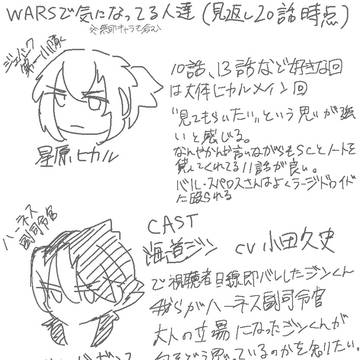 WARSで気になってる人達(見返し20話時点)
ジェノック
第一小隊
星原ヒカル
10話、13話など好きな回
は大体ヒカルメイン回
"見てもらいたい"という思いが強
いと感じる。
なんやかんや言いながらもSCとノートを
貸してくれてる11話が良い。
バル・スパロスさんはよくラージドロイド
に殴られる
ハーネス
副司令官
CAST
海道ジン CV 小田久史
で視聴者目線即バレしたジンくん
我らがハーネス副司令官
大人の立場になったジンくんが